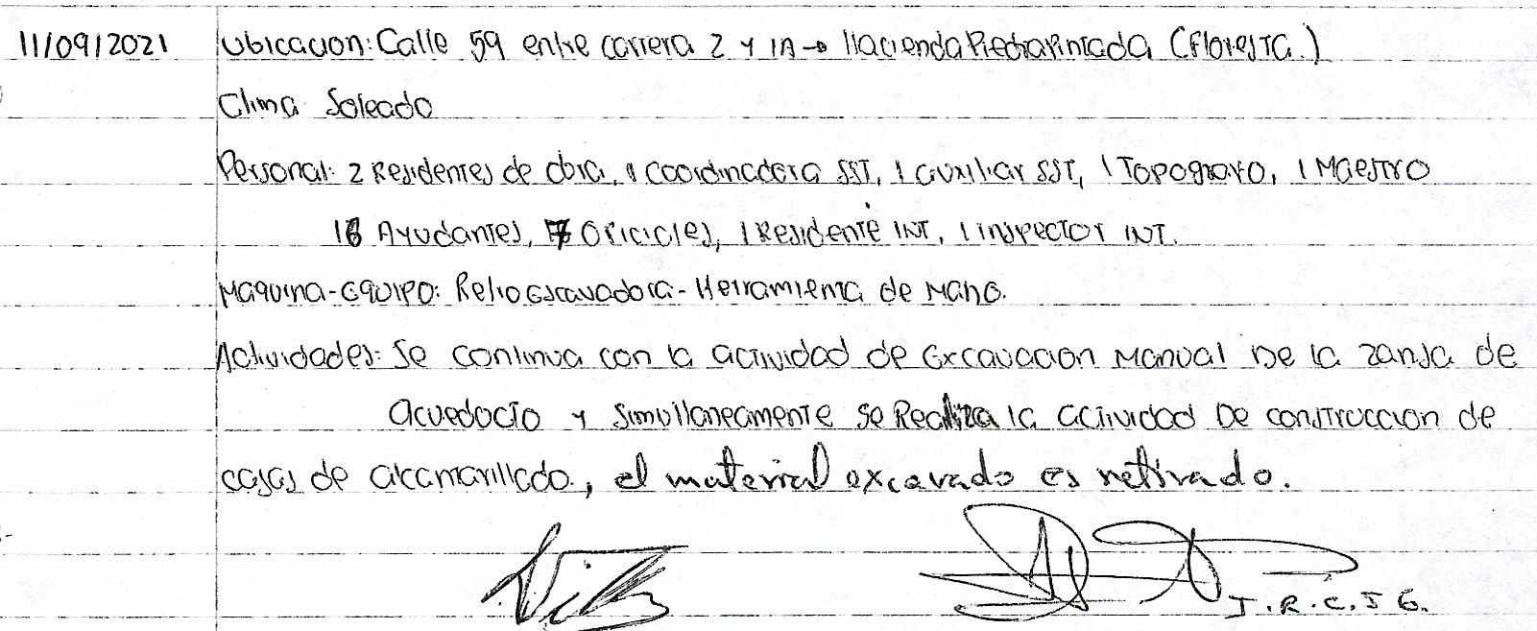 11/09/2021 Ubicacion: Calle 59 entre carrera 2 y 1A → Hacienda Piedrapintada (Floresta.)
Clima Soleado
Personal: 2 Residentes de obra, 1 Coordinadora SST, 1 auxiliar SST, 1 Topografo, 1 Maestro
16 Ayudantes, 7 Oficiales, 1 Residente INT, 1 inspector INT.
Maquina-Equipo: Retroexcavadora - Herramienta de Mano.
Actividades: Se continua con la actividad de Excavacion Manual De la zanja de
acueducto y Simultaneamente se Realiza la actividad De construccion de
cajas de alcantarillado, el material excavado es retirado.
J.R.C.J G.